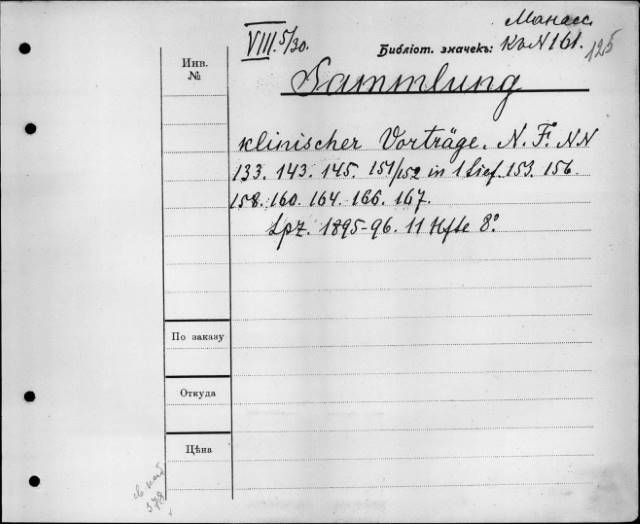 VIII. 5/30.
Манасс.
Библіот. значекъ: Къ N 161.
125
Инв.
№
Sammlung
klinischer Vorträge. N. F. NN
133. 143. 145. 151/152 in 1 Lief. 153. 156.
158. 160. 164. 166. 167.
Lpz. 1895-96. 11 Hfte 8°
По заказу
Откуда
Цѣна
378